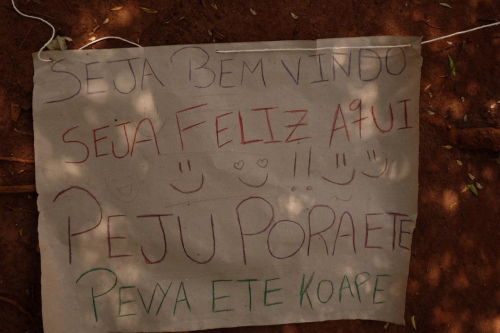 SEJA BEM VINDO
SEJA FELIZ AQUI
!!
PEJU PORÃ ETE
PEVYA ETE KOAPE